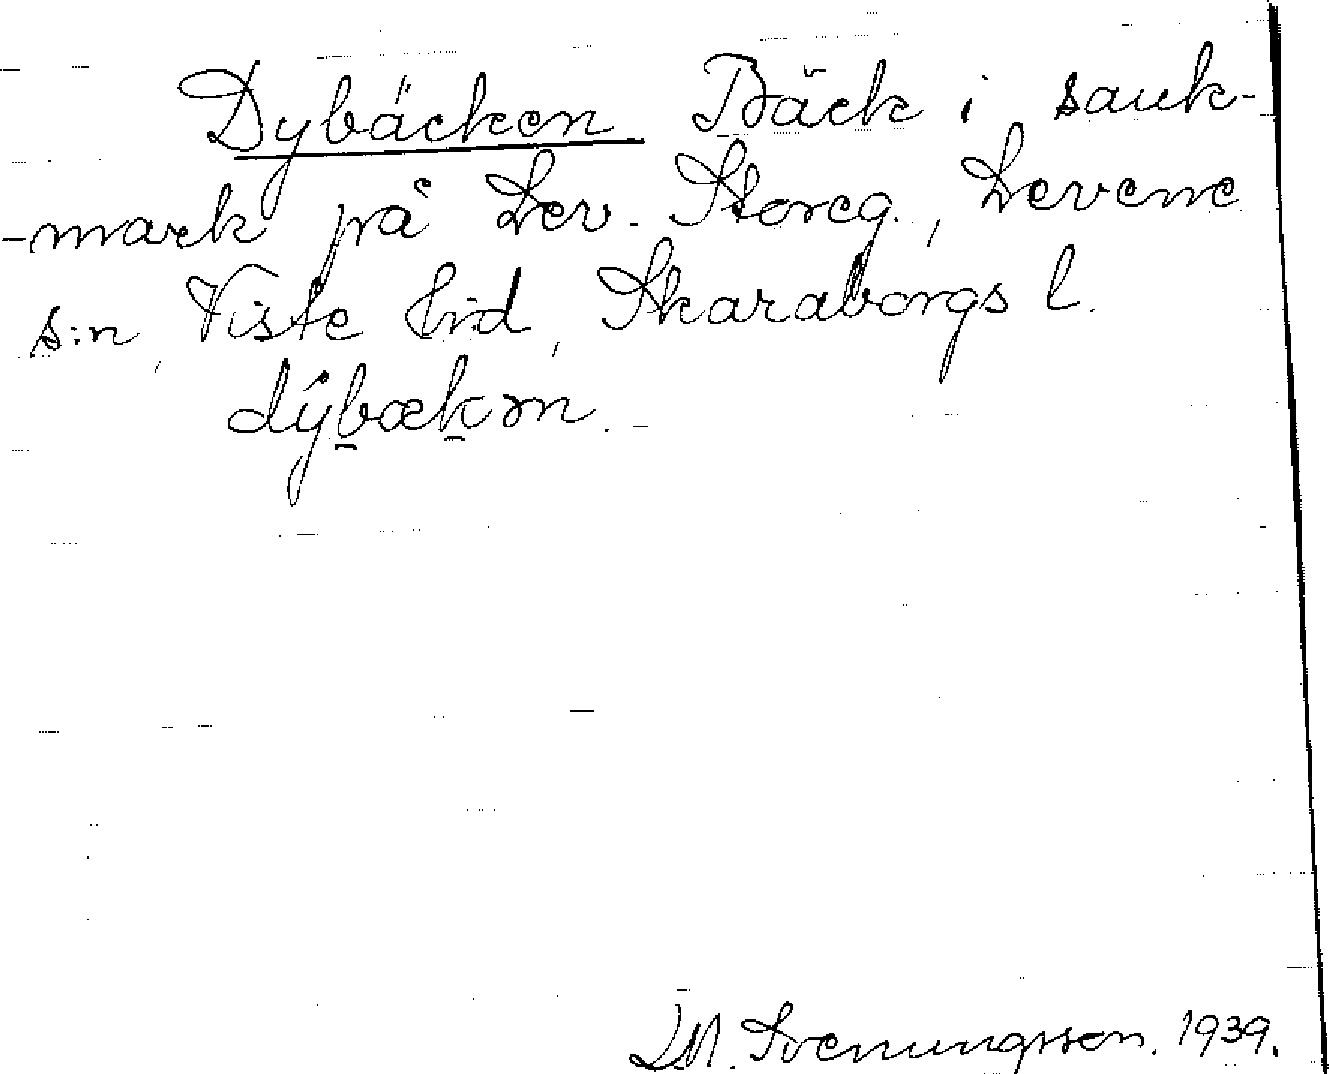 Dybäcken Bäck i sank-
-mark på Lev. Storeg., Levene
s:n, Viste hrd, Skaraborgs l.
dýbækən.
LM. Svenungsson. 1939.